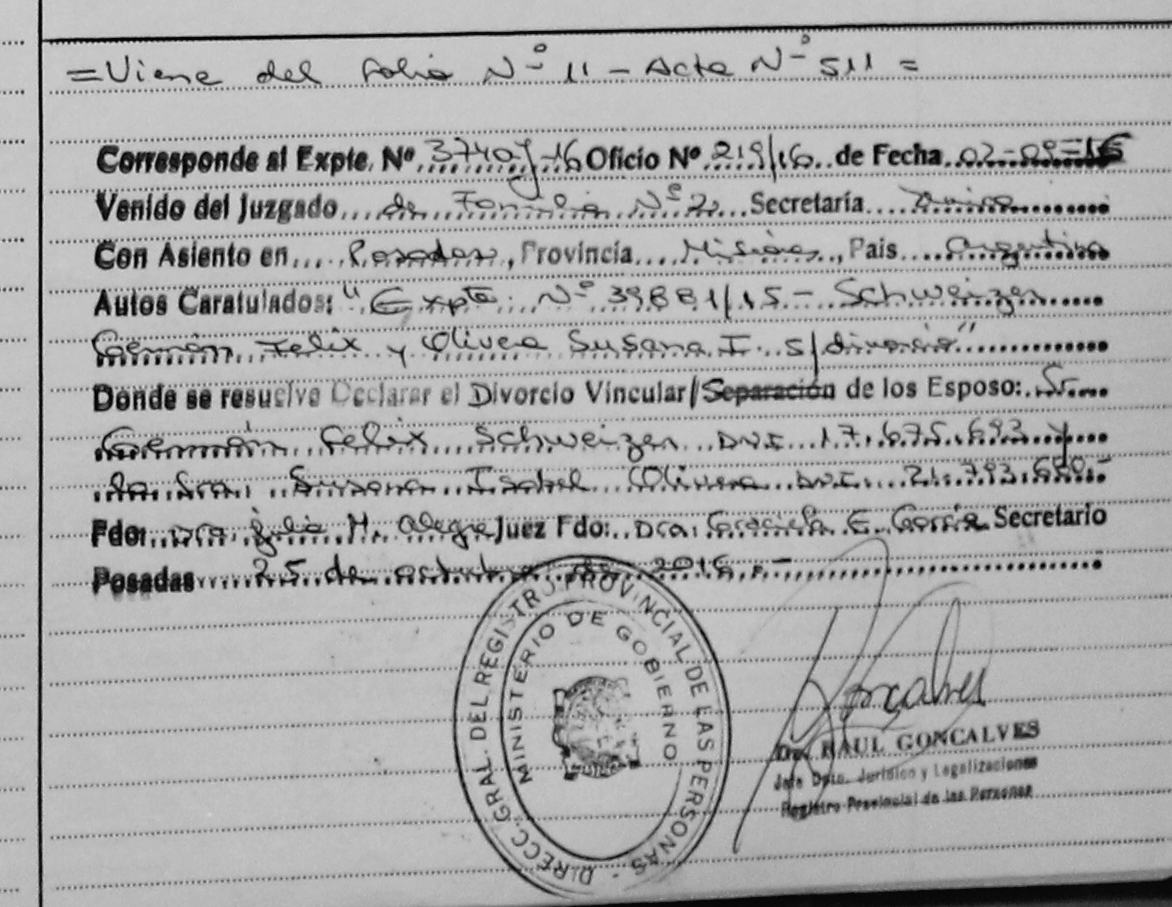 =Viene del folio Nº 11 - Acta Nº 511 =
Corresponde al Expte. Nº 3740y-16 Oficio Nº 219/16 de Fecha 02-09-16
Venido del Juzgado de Familia Nº 2 Secretaría Única
Con Asiento en Posadas, Provincia Misiones, País Argentina
Autos Caratulados: "Expte. Nº 39881/15 - Schweizer
Germán Felix y Olivera Susana I. s/divorcio"
Donde se resuelve Declarar el Divorcio Vincular/Separación de los Esposo: Sr.
Germán Felix Schweizer DNI 17.675.693 y
la Sra. Susana Isabel Olivera DNI. 21.793.680.-
Fdo: Dra Julia M. Alegre Juez Fdo: Dra. Graciela E. García Secretario
Posadas 25 de octubre de 2016.-
DIRECC. GRAL. DEL REGISTRO PROVINCIAL DE LAS PERSONAS -
MINISTERIO DE GOBIERNO
Goncalves
Dr. RAUL GONCALVES
Jefe Dpto. Jurídico y Legalizaciones
Registro Provincial de las Personas